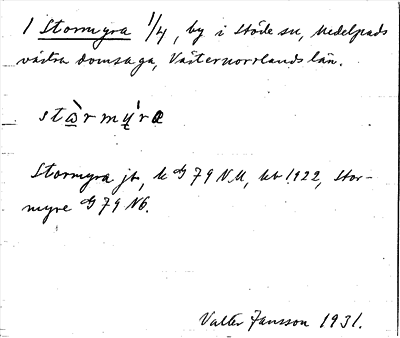 1 Stormyra 1/4, by i Stöde sn, Medelpads
västra domsaga, Västernorrlands län.
stὼrmy̠'ra
Stormyra jb, k G 79 NU, kb 1922, Stor-
myre G 79 Nb.
Valter Jansson 1931.